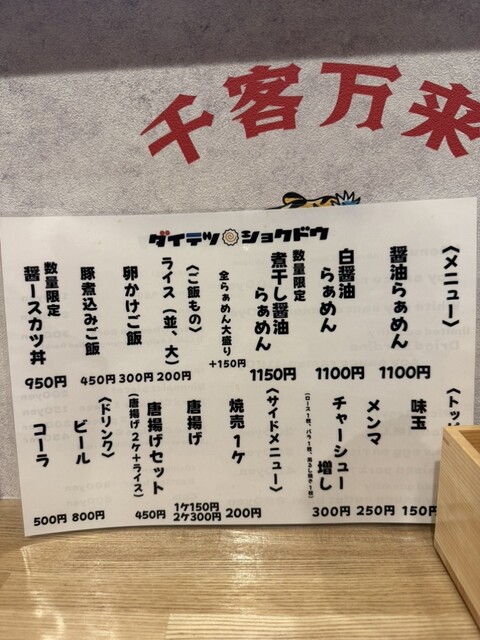 千客万来
ダイテツ ショクドウ
〈メニュー〉
醤油らぁめん
1100円
白醤油
らぁめん
1100円
数量限定
煮干し醤油
らぁめん
1150円
全らぁめん大盛り
+150円
〈ご飯もの〉
ライス（並、大）
200円
卵かけご飯
300円
豚煮込みご飯
450円
数量限定
醤ースカツ丼
950円
〈トッ
味玉
150円
メンマ
250円
チャーシュー
増し
300円
〈サイドメニュー〉
焼売1ケ
200円
唐揚げ
1ケ150円
2ケ300円
唐揚げセット
(唐揚げ2ケ+ライス)
450円
〈ドリンク〉
ビール
800円
コーラ
500円